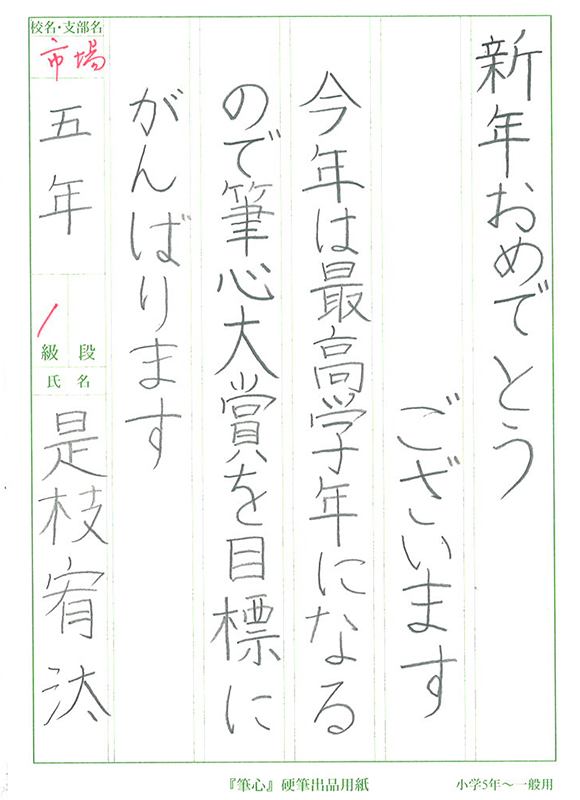 新年おめでとう
ございます
今年は最高学年になる
ので筆心大賞を目標に
がんばります
校名・支部名
市場
五年
級 段
氏名
是枝宥汰
『筆心』硬筆出品用紙
小学5年～一般用